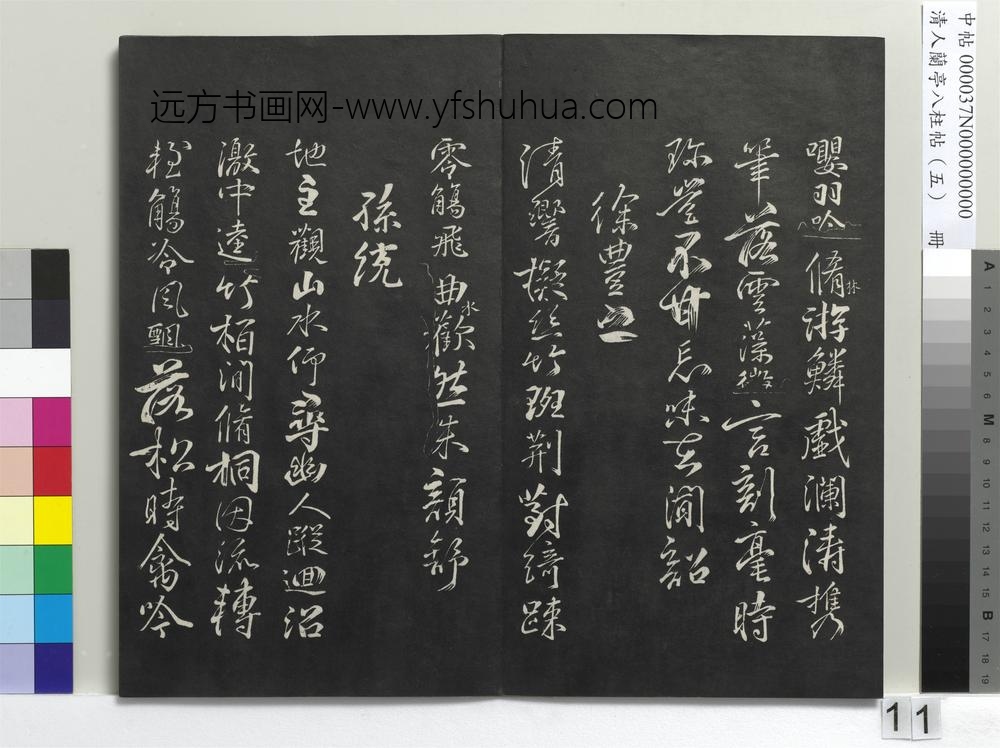 中帖 000037N000000000
清人蘭亭八柱帖(五) 冊
远方书画网-www.yfshuhua.com
嚶羽吟脩林游鱗戲瀾濤攜
筆落雲藻微言剖毫時
珍豈不甘忘味在聞韶
徐豐之
清響擬絲竹班荊對綺疎
零觴飛曲水歡然朱顏舒
孫統
地主觀山水仰尋幽人蹤迴沼
激中逵竹柏間脩桐因流轉
輕觴冷風飄落松時禽吟
A 1 2 3 4 5 6 M 8 9 10 11 12 13 14 15 B 17 18 19
11